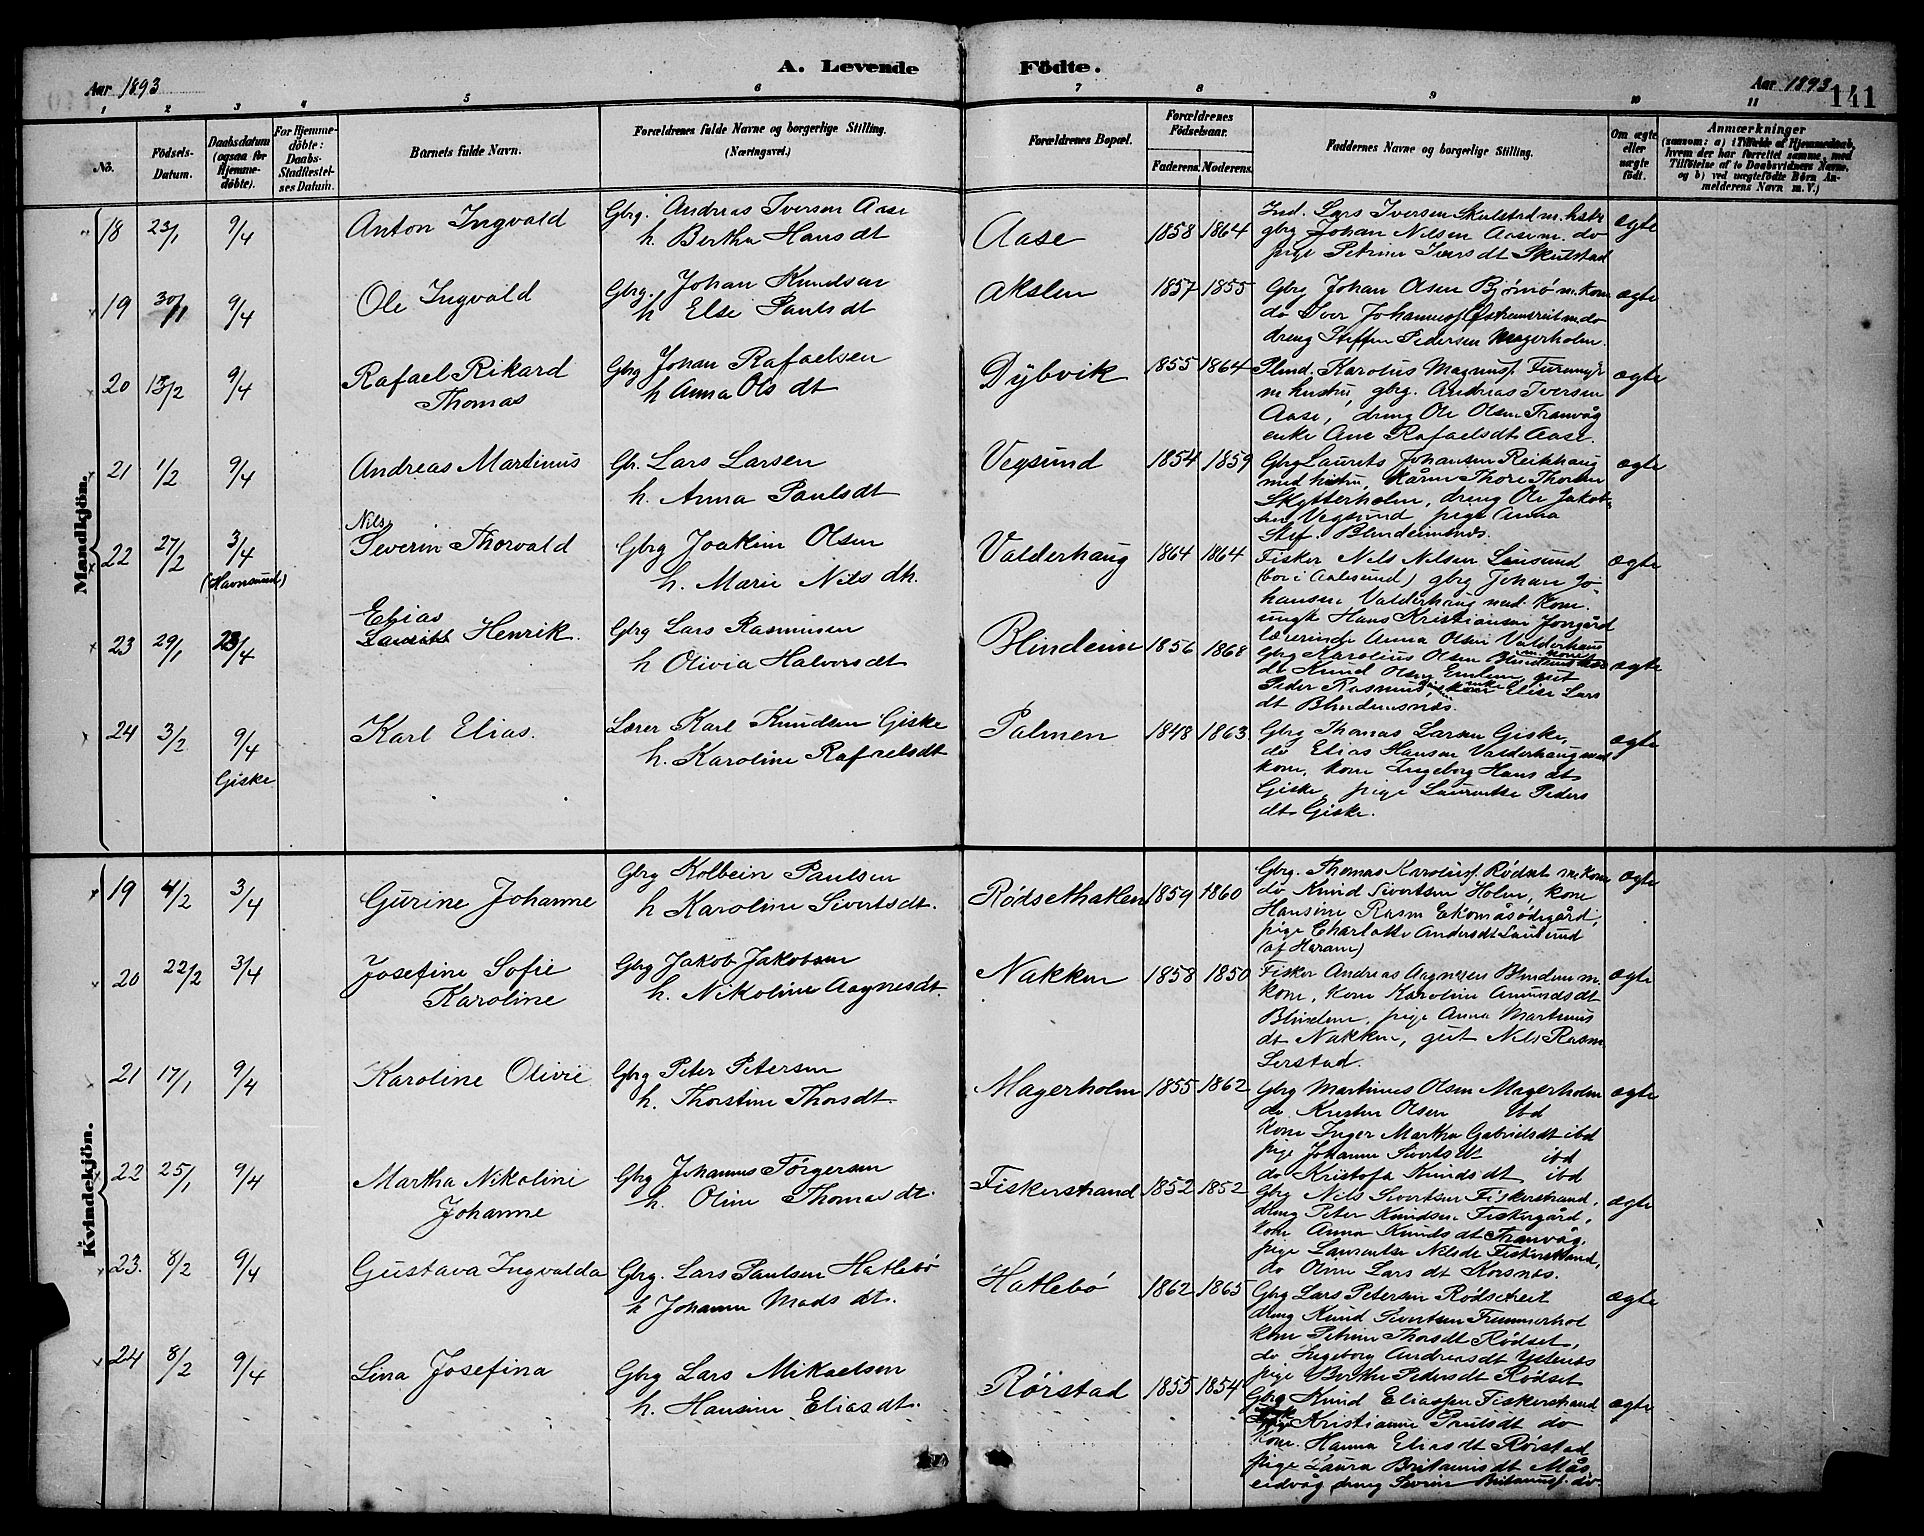 Aar 1893
A. Levende Födte.
Aar 1893
141
1 2 3 4 5 6 7 8 9 10 11
No.
Födsels-Datum.
Daabsdatum (ogsaa for Hjemmedöbte).
For Hjemmedöbte: Daabs-Stadfæstelses Datum.
Barnets fulde Navn.
Forældrenes fulde Navne og borgerlige Stilling. (Næringsvei.)
Forældrenes Bopæl.
Forældrenes Födselsaar.
Faderens. Moderens.
Faddernes Navne og borgerlige Stilling.
Om ægte eller uægte födt.
Anmærkninger
(saasom: a) i Tilfælde af Hjemmedaab, hvem der har forrettet samme, med Tilföielse af to Daabsvidners Navne, og b) ved uægtefödte Börn Anmelderens Navn m. V.)
Mandkjön.
18 23/1 9/4 Anton Ingvald
Gbrg. Andreas Iversen Aase
h. Bertha Hansdt
Aase 1858 1864
Ind. Lars Iversen Skulstad m. hstr
gbrg Johan Nilsen Aase m. do
pige Petrine Iversdt Skulstad
ægte
19 30/1 9/4 Ole Ingvald
Gbrg. Johan Knudsen
h Else Paulsdt
Akslen 1857 1855
Gbrg Johan Olsen Bjørnø m. kone
do Iver Johannes. Østremsreit m. do
dreng Steffen Pedersen Magerholm.
ægte
20 13/2 9/4 Rafael Rikard
Thomas
Gbrg Johan Rafaelsen
h Anna Olsdt
Dybvik 1855 1864
Karolus Magnus.
m hustru, gbrg. Andreas Iversen
Aase, dreng Ole Olsen Tranvåg
enke Ane Rafaelsdt Aase.
ægte
21 1/2 9/4 Andreas Martinus
Gbr. Lars Larsen
h. Anna Paulsdt
Vegsund 1854 1859
Gbrg Laurits Johansen Reikhaug
med hustru,
Skytterholm, dreng Ole Jakob-
sen Vegsund pige Anna
Blindeimsnes.
ægte
22 27/2 3/4
(Havnsund)
Nils
Severin Thorvald
Gbrg Joakim Olsen
h. Marie Nilsdt.
Valderhaug 1864 1864
Fisker Nils Nilsen
(bor i Aalesund) gbrg Johan Jo-
hansen Valderhaug med kone.
ungk Hans Kristiansen
lærerinde Anna Olsen Valderhaug
ægte
23 29/1 23/4
Elias
Henrik.
Gbrg Lars Rasmussen
h Olivia Halvorsdt
Blindeim 1856 1868
Gbrg Karolius Olsen Blindeim m. kone
Knud Olsen Emlem, gut
Peder Rasmus. Elise Lars
dt Blindeimsnes.
ægte
24 3/2 9/4
Giske
Karl Elias.
Lærer Karl Knudsen Giske
h. Karoline Rafaelsdt
Palmen 1848 1863
Gbrg Thomas Larsen Giske,
do Elias Hansen Valderhaug med
kone, kone Ingeborg Hansdt
Giske, pige Laurentse Peders
dt Giske.
ægte
Kvindekjön.
19 4/2 3/4 Gurine Johanne
Gbrg Kolbein Paulsen
h Karoline Sivertsdt.
Rødsethaken 1859 1860
Gbrg. Thomas Karolus. Rødset m. kone
do Knud Sivertsen Holen, kone
Hansine Rasm Ekornåsødegård,
pige Charlotte Andersdt
(af Haram)
ægte
20 22/2 3/4 Josefine Sofie
Karoline
Gbrg Jakob Jakobsen
h. Nikoline Aagnesdt.
Nakken 1858 1850
Fisker Andreas Aagnesen Blindem m.
kone, kone Karoline Amundsdt
Blindem, pige Anna Martinus
dt Nakken, gut Nils Rasm
Lerstad.
ægte
21 17/1 9/4 Karoline Olivie
Gbrg Peter Petersen
h. Thorstine Thorsdt.
Magerholm 1855 1862
Gbrg Martinus Olsen Magerholm
do. Kresten Olsen ibd
kone Inger Martha Gabrielsdt ibd
pige Johanne Sivertsdt ibd
do Kristofa Knudsdt ibd
ægte
22 25/1 9/4 Martha Nikoline
Johanne
Gbrg Johannes Törgersen
h. Oline Thomasdt.
Fiskerstrand 1852 1852
Gbrg Nils Sivertsen Fiskerstrand,
dreng Peter Knudsen Fiskergård,
kone Anna Knudsdt Tranvåg,
pige Laurentse Nilsdt Fiskerstrand,
do Oline Larsdt Korsnes.
ægte
23. 8/2 9/4 Gustava Ingvalda
Gbrg. Lars Paulsen Hatlebø
h Johanne Madsdt.
Hatlebø 1862 1865
Gbrg Lars Petersen Rødsetreit
dreng Knud Sivertsen
kone Petrine Thorsdt Rødset,
do Ingeborg Andreasdt
pige Berthe Pedersdt Rødset
ægte
24 8/2 9/4 Lina Josefina
Gbrg Lars Mikaelsen
h. Hansine Eliasdt.
Rørstad 1855 1854
Gbrg Knud Eliassen Fiskerstrand
Kristianne Paulsdt do
kone. Hanna Eliasdt Rørstad
pige Laura Britanusdt Mås
eidvåg dreng Severin Britanus. do.
ægte